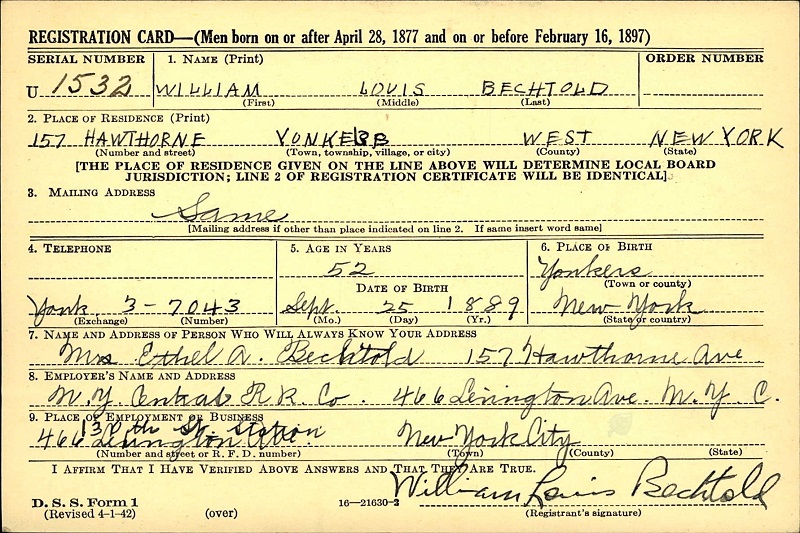 REGISTRATION CARD—(Men born on or after April 28, 1877 and on or before February 16, 1897)
SERIAL NUMBER 1. NAME (Print) ORDER NUMBER
U 1532 WILLIAM LOUIS BECHTOLD
(First) (Middle) (Last)
2. PLACE OF RESIDENCE (Print)
157 HAWTHORNE YONKERS WEST NEW YORK
(Number and street) (Town, township, village, or city) (County) (State)
[THE PLACE OF RESIDENCE GIVEN ON THE LINE ABOVE WILL DETERMINE LOCAL BOARD
JURISDICTION; LINE 2 OF REGISTRATION CERTIFICATE WILL BE IDENTICAL]
3. MAILING ADDRESS
Same
[Mailing address if other than place indicated on line 2. If same insert word same]
4. TELEPHONE 5. AGE IN YEARS 6. PLACE OF BIRTH
52 Yonkers
DATE OF BIRTH (Town or county)
Yonk 3-7043 Sept. 25 1889 New York
(Exchange) (Number) (Mo.) (Day) (Yr.) (State or country)
7. NAME AND ADDRESS OF PERSON WHO WILL ALWAYS KNOW YOUR ADDRESS
Mrs Ethel A. Bechtold 157 Hawthorne Ave.
8. EMPLOYER'S NAME AND ADDRESS
N.Y. Central R.R. Co. 466 Lexington Ave. N.Y.C.
9. PLACE OF EMPLOYMENT OR BUSINESS
th St. Station
466 Lexington Ave. New York City
(Number and street or R. F. D. number) (Town) (County) (State)
I AFFIRM THAT I HAVE VERIFIED ABOVE ANSWERS AND THAT THEY ARE TRUE.
William Louis Bechtold
D. S. S. Form 1
(Revised 4-1-42) (over) 16—21630-2 (Registrant's signature)